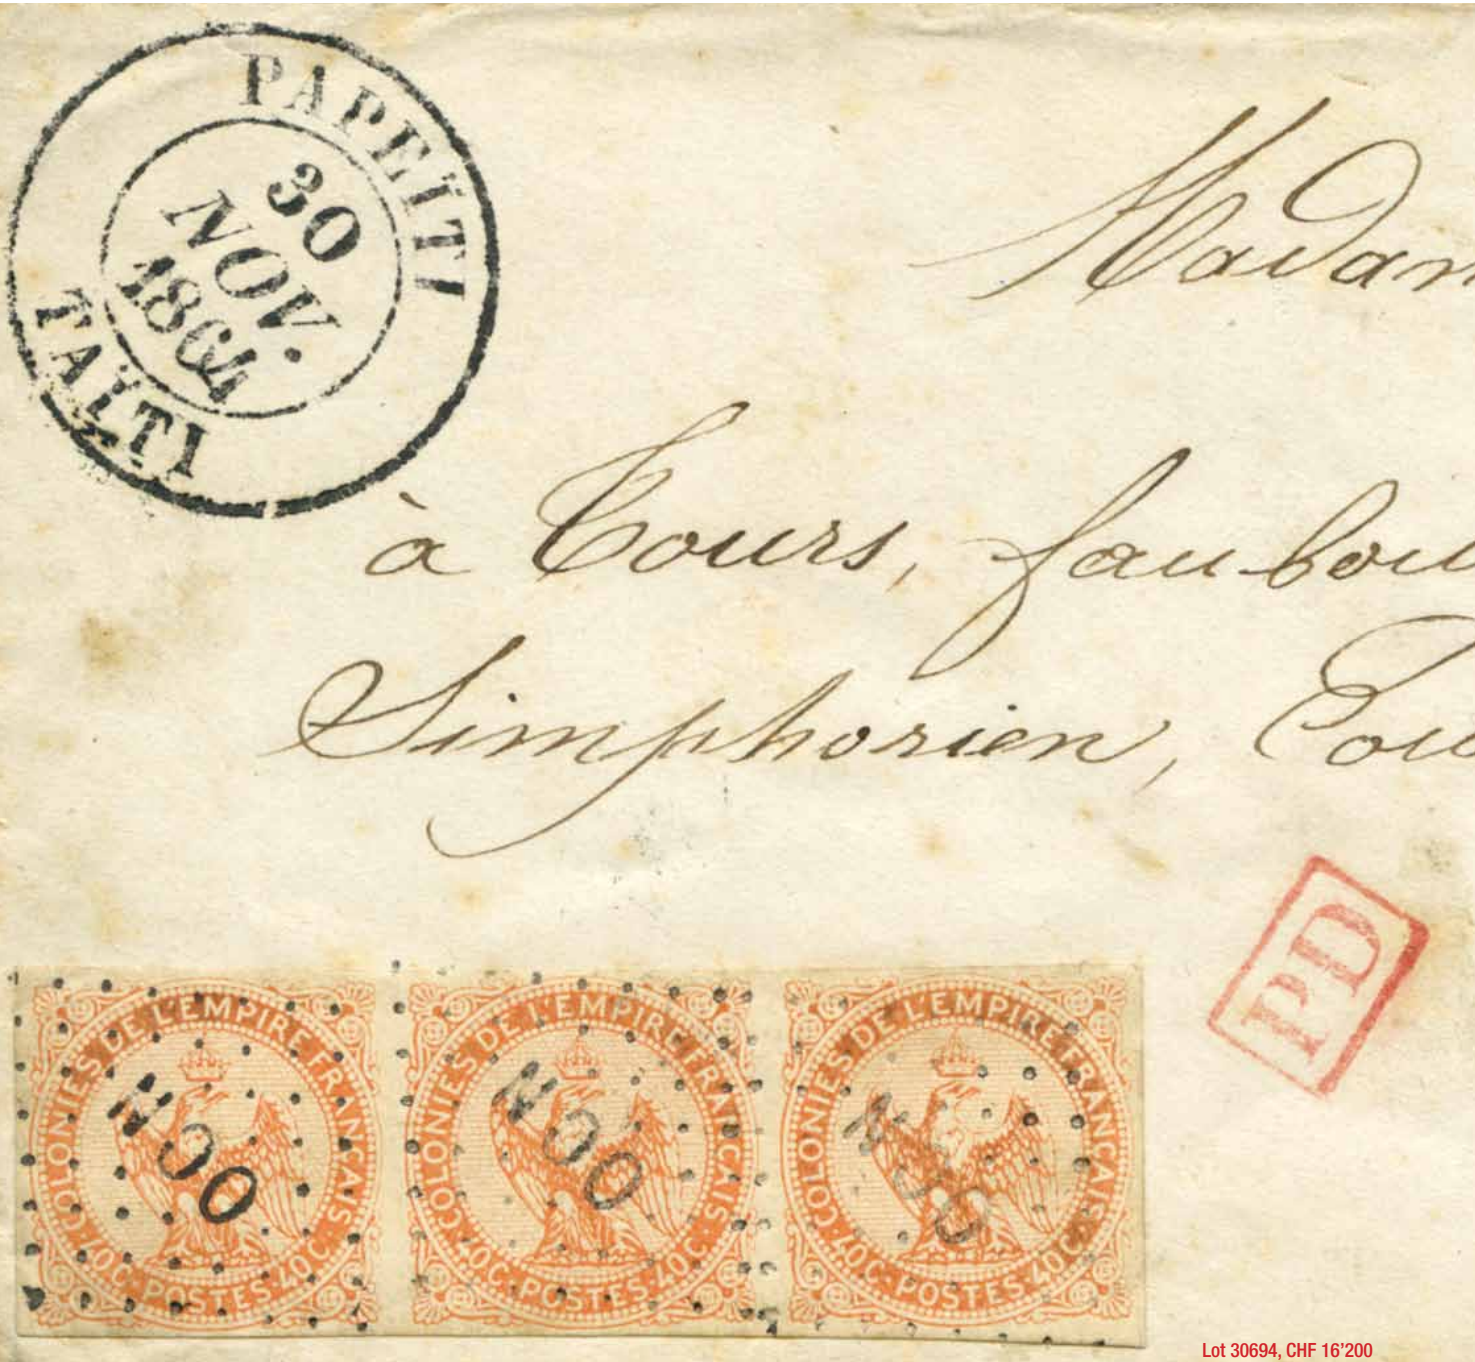 PAPEITI
30
NOV.
1864
TAÏTI
Madam
à Tours, faubou
Simphorien, Tou
PD
COLONIES DE L'EMPIRE FRANÇAIS
40C·POSTES·40C
NOO
COLONIES DE L'EMPIRE FRANÇAIS
40C·POSTES·40C
NOO
COLONIES DE L'EMPIRE FRANÇAIS
40C·POSTES·40C
NOO
Lot 30694, CHF 16'200